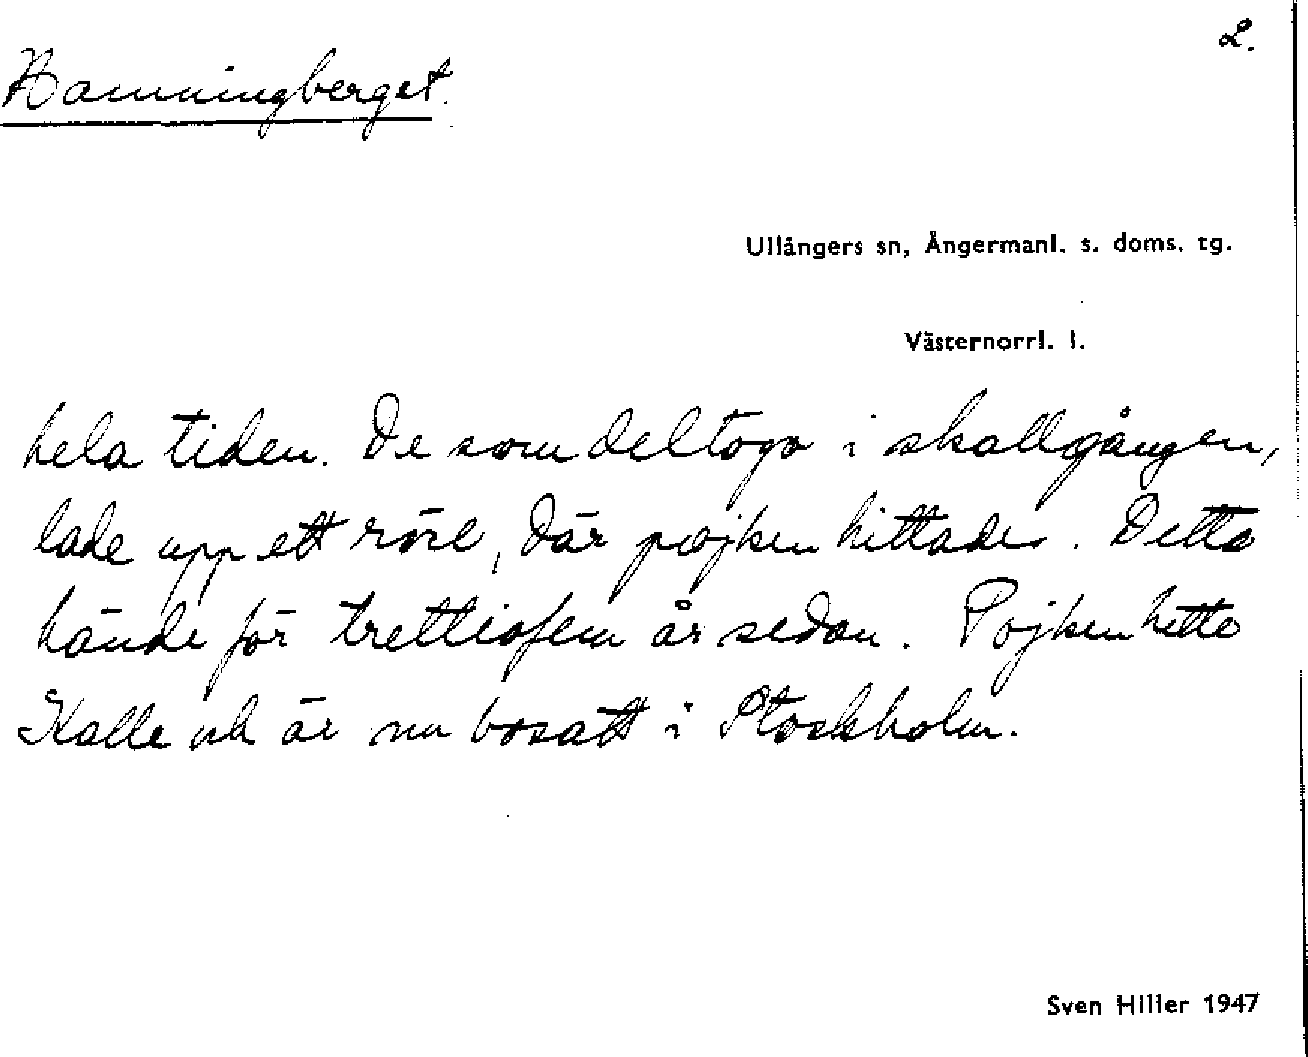 2.
Hamningberget.
Ullångers sn, Ångermanl. s. doms. tg.
Västernorrl. l.
hela tiden. De som deltogo i skallgången,
lade upp ett röse, där pojken hittades. Detta
hände för trettiofem år sedan. Pojken hette
Kalle och är nu bosatt i Stockholm.
Sven Hiller 1947